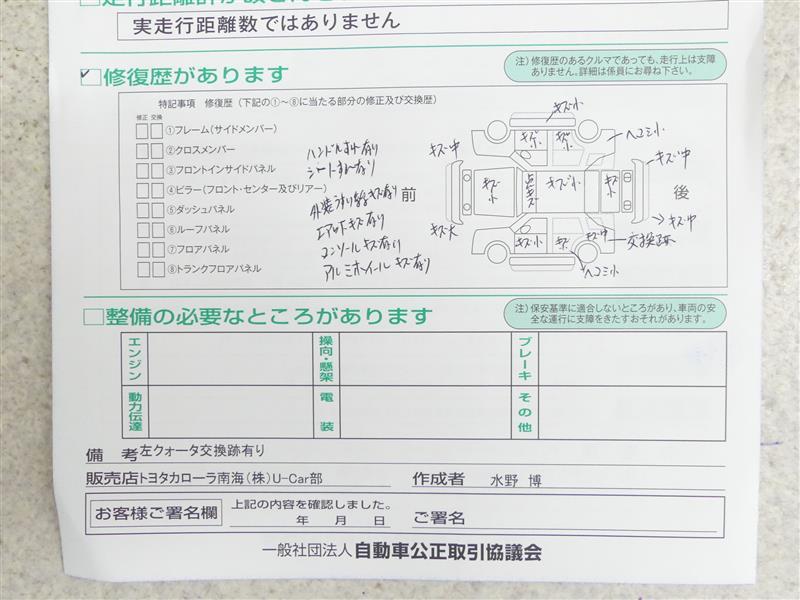 実走行距離数ではありません
修復歴があります
注）修復歴のあるクルマであっても、走行上は支障
ありません。詳細は係員にお尋ね下さい。
特記事項 修復歴（下記の①～⑧に当たる部分の修正及び交換歴）
修正 交換
①フレーム（サイドメンバー）
②クロスメンバー
③フロントインサイドパネル
④ピラー（フロント・センター及びリアー）
⑤ダッシュパネル
⑥ルーフパネル
⑦フロアパネル
⑧トランクフロアパネル
ハンドルすれ有り
シートすれ有り
キズ有り
エアロキズ有り
コンソールキズ有り
アルミホイールキズ有り
前
後
キズ小
キズ中
キズ小
キズ小
ヘコミ小
キズ中
キズ小
キズ小
キズ小
キズ大
キズ中
キズ小
キズ小
キズ中
交換跡
ヘコミ小
整備の必要なところがあります
注）保安基準に適合しないところがあり、車両の安
全な運行に支障をきたすおそれがあります。
エンジン
操向・懸架
ブレーキ
動力伝達
電装
その他
備考 左クォータ交換跡有り
販売店 トヨタカローラ南海（株）U-Car部 作成者 水野 博
お客様ご署名欄
上記の内容を確認しました。
年 月 日 ご署名
一般社団法人 自動車公正取引協議会